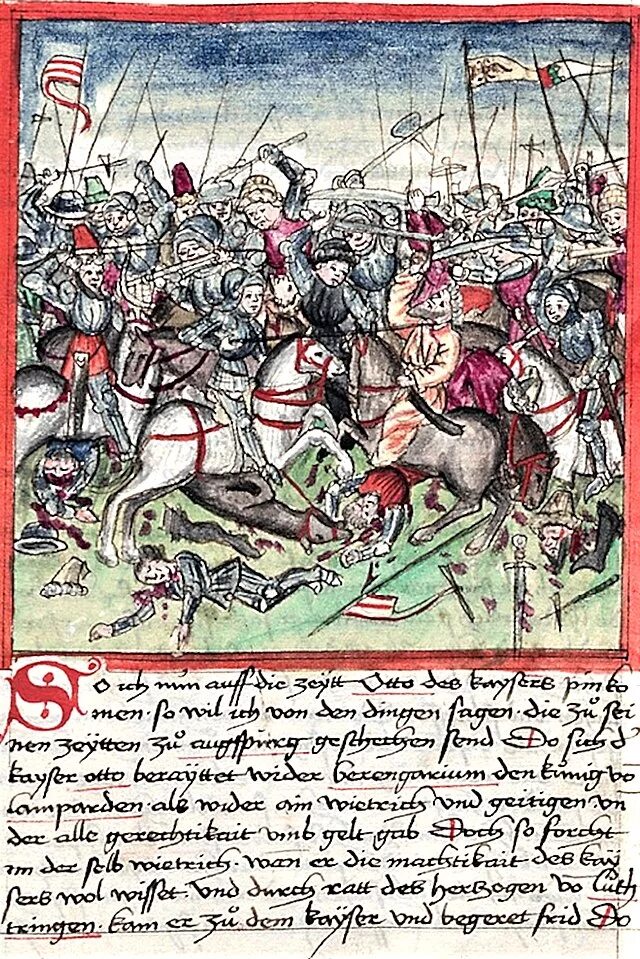 So ich nun auff die zeytt Otto des kaysers pin ko
men · so wil ich von den dingen sagen · die zů sei
nen zeytten zů augspurg geschechen send Do sich d'
kayser otto berayttet wider berengarium den künig vo
lamparden · als wider ain wietrich vnd geitigen vn
der alle gerechtikait vmb gelt gab Doch so forcht
im der selb wietrich · wan er die machtikait des kay
sers wol wisset · vnd durch ratt des herczogen vo luth
tringen · kam er zů dem kayser vnd begeret frid Do